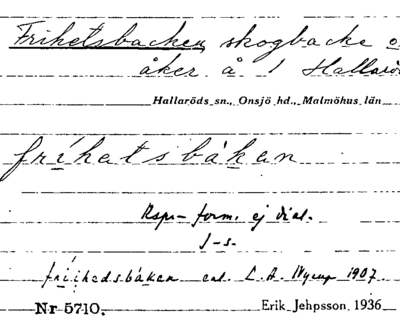 Frihetsbacken skogbacke o
åker å 1 Hallarö
Hallaröds sn., Onsjö hd., Malmöhus län
fríhatsbákan
Rspr-form, ej dial.
J-s.
fríihedsbáken enl. L. A. Nyrup 1907
Nr 5710. Erik Jehpsson 1936